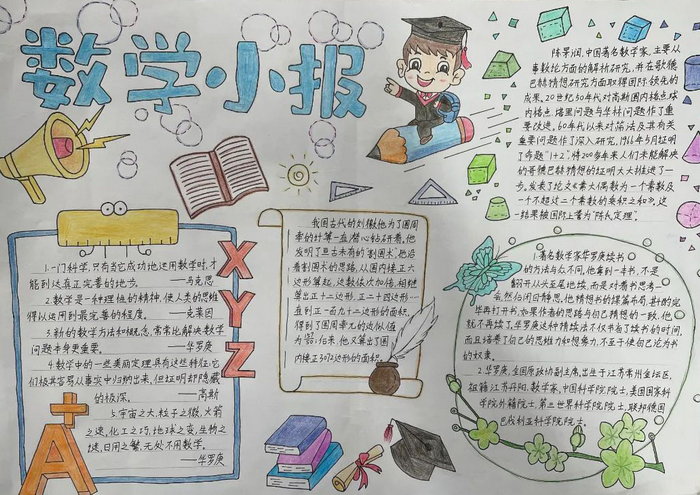 数学小报
陈景润,中国著名数学家,主要从
事数论方面的解析研究,并在歌德
巴赫猜想研究方面取得国际领先的
成果。20世纪50年代对高斯圆内格点、球
内格点、塔里问题与华林问题作了重
要改进。60年代以来对筛法及其有关
重要问题作了深入研究,1966年5月证明
了命题"1+2",将200多年来人们未能解决
的哥德巴赫猜想的证明大大推进了一
步。发表了论文《表大偶数为一个素数及
一个不超过二个素数的乘积之和》,这
一结果被国际上誉为"陈氏定理"。
1.一门科学,只有当它成功地运用数学时,才
能到达真正完善的地步。——马克思
2.数学是一种理性的精神,使人类的思维
得以运用到最完善的程度。——克莱因
3.新的数学方法和概念,常常比解决数学
问题本身更重要。——华罗庚
4.数学中的一些美丽定理具有这样的特征:它
们极其容易从事实中归纳出来,但证明却隐藏
的极深。——高斯
5.宇宙之大,粒子之微,火箭
之速,化工之巧,地球之变,生物之
谜,日用之繁,无处不用数学。
——华罗庚
X
Y
Z
A+
我国古代的刘徽他为了圆周
率的计算一直潜心钻研着,他
发明了亘古未有的"割圆术",他沿
着割圆术的思路,从圆内接正六
边形算起,边数依次加倍,相继
算出正十二边形,正二十四边形…
直到正一百九十二边形的面积,
得到了圆周率兀的近似值
为,后来,他又算出了圆
内接正3072边形的面积。
1.著名数学家华罗庚读书
的方法与众不同,他拿到一本书,不是
翻开从头至尾地读,而是对着书思考一
会,然后闭目静思,他猜想书的谋篇布局,斟酌完
毕再打开书,如果作者的思路与自己猜想的一致,他
就不再读了,华罗庚这种猜读法不仅节省了读书的时间,
而且培养了自己的思维力和想象力,不至于使自己沦为书
的奴隶。
2.华罗庚,全国原政协副主席,出生于江苏常州金坛区,
祖籍江苏丹阳,数学家,中国科学院院士,美国国家科
学院外籍院士,第三世界科学院院士,联邦德国
巴伐利亚科学院院士。